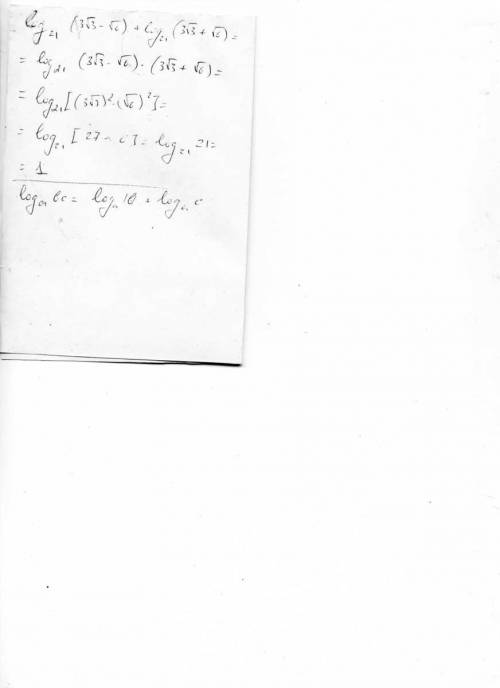 log₂₁ (3√3 - √6) + log₂₁ (3√3 + √6) =
= log₂₁ (3√3 - √6) · (3√3 + √6) =
= log₂₁ [(3√3)² - (√6)²] =
= log₂₁ [27 - 6] = log₂₁ 21 =
= 1
logₐ bc = logₐ b + logₐ c